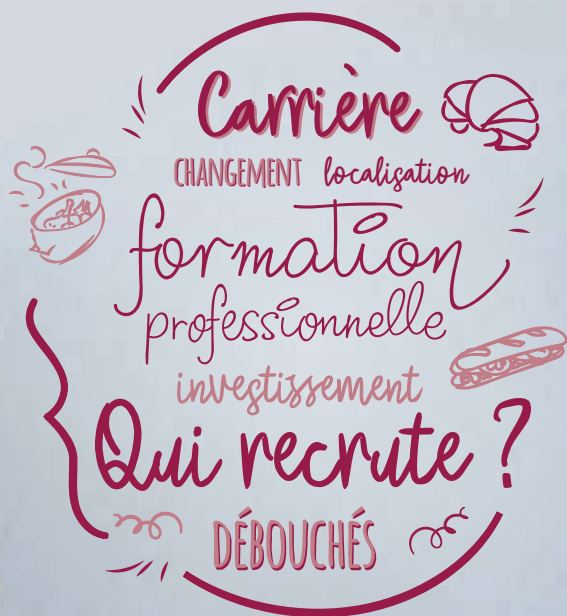 Carrière
CHANGEMENT localisation
formation
professionnelle
investissement
Qui recrute ?
DÉBOUCHÉS